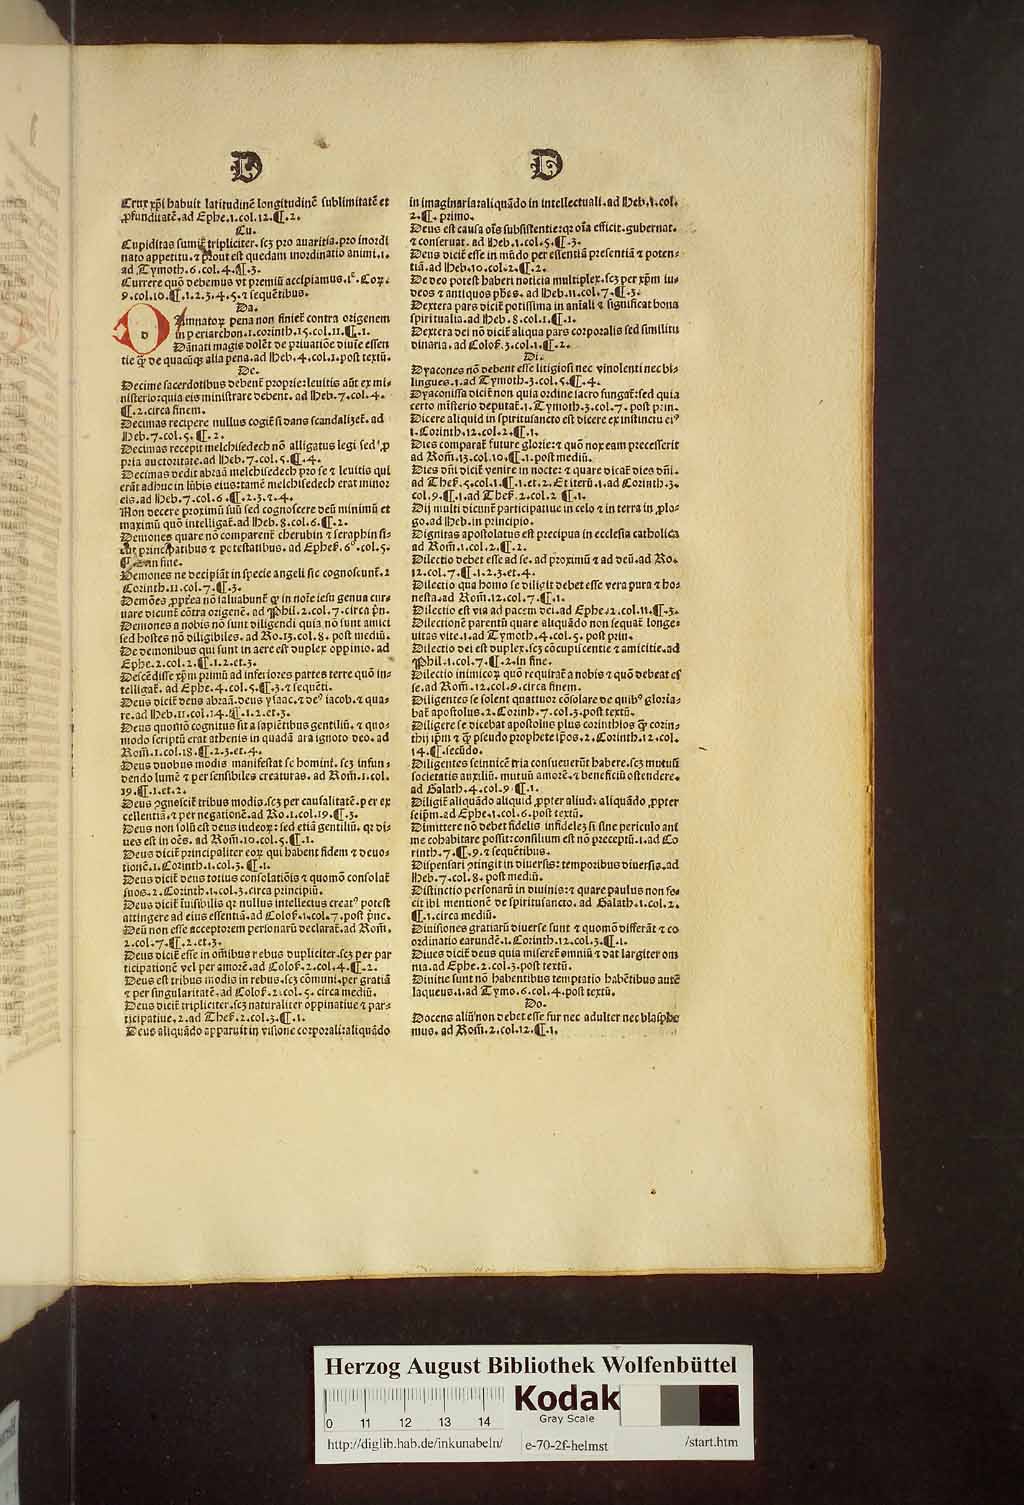 D
Crux xp̄i habuit latitudinē longitudinē sublimitatē et
ꝓfunditatē. ad Ephe.1.col.12.¶.2.
Cu.
Cupiditas sumit̄ tripliciter. scꝫ pro auaritia. pro inordi
nato appetitu. ⁊ prout est quedam inordinatio animi.1.
ad Tymoth.6.col.4.¶.3.
Currere quō debemus vt premiū accipiamus.1ᵉ.Coꝝ.
9.col.10.¶.1.2.3.4.5.⁊ sequētibus.
Da.
Damnatoꝝ pena non finiet̄ contra origenem
in periarchon.1.corinth.15.col.11.¶.1.
Dānati magis dolēt de priuatiōe diuīe essen
tie qꝫ de quacūqꝫ alia pena. ad Heb.4.col.1.post textū.
De.
Decime sacerdotibus debent̄ proprie: leuitis aūt ex mi⸗
nisterio: quia eis ministrare debent. ad Heb.7.col.4.
¶.2.circa finem.
Decimas recipere nullus cogit̄ si dans scandaliꝫet̄. ad
Heb.7.col.5.¶.2.
Decimas recepit melchisedech nō alligatus legi sed ꝓ
pria auctoritate. ad Heb.7.col.5.¶.4.
Decimas dedit abraā melchisedech pro se ⁊ leuitis qui
erāt adhuc in lūbis eius: tamē melchisedech erat minor
eis. ad Heb.7.col.6.¶.2.3.⁊.4.
Non decere proximū suū sed cognoscere deū minimū et
maximū quō intelligat̄. ad Heb.8.col.6.¶.2.
Demones quare nō comparent̄ cherubin ⁊ seraphin si⸗
cut principatibus ⁊ potestatibus. ad Ephes̄.6°.col.5.
¶. in fine.
Demones ne decipiāt in specie angeli sic cognoscunt̄.2
Corinth.11.col.7.¶.3.
Demōes ꝓpt̄ea nō saluabunt̄ qꝫ in noīe iesu genua cur⸗
uare dicunt̄ cōtra origenē. ad Phil.2.col.7.circa pͥn.
Demones a nobis nō sunt diligendi quia nō sunt amici
sed hostes nō diligibiles. ad Ro.13.col.8. post mediū.
De demonibus qui sunt in aere est duplex oppinio. ad
Ephe.2.col.2.¶.1.2.et.3.
Descēdisse xp̄m primū ad inferiores partes terre quō in⸗
telligat̄. ad Ephe.4.col.5.¶.3.⁊ sequēti.
Deus dicit̄ deus abraā. deus ysaac. ⁊ deꝰ iacob. ⁊ qua⸗
re. ad Heb.11.col.14.¶.1.2.et.3.
Deus quomō cognitus sit a sapiētibus gentiliū. ⁊ quo⸗
modo scriptū erat athenis in quadā ara ignoto deo. ad
Rom̄.1.col.18.¶.2.3.et.4.
Deus duobus modis manifestat se homini. scꝫ infun⸗
dendo lumē ⁊ per sensibiles creaturas. ad Rom̄.1.col.
19.¶.1.et.2.
Deus ꝯgnoscit̄ tribus modis. scꝫ per causalitatē. per ex
cellentiā. ⁊ per negationē. ad Ro.1.col.19.¶.3.
Deus non solū est deus iudeoꝝ: sed etiā gentiliū. qꝛ di⸗
ues est in oēs. ad Rom̄.10.col.5.¶.1.
Deus dicit̄ principaliter eoꝝ qui habent fidem ⁊ deuo⸗
tionē.1.Corinth.1.col.3.¶.1.
Deus dicit̄ deus totius consolatiōis ⁊ quomō consolat̄
suos.2.Corinth.1.col.3.circa principiū.
Deus dicit̄ īuisibilis qꝛ nullus intellectus creatꝰ potest
attingere ad eius essentiā. ad Colos̄.1.col.7.post pͥnc.
Deū non esse acceptorem personarū declarat̄. ad Rom̄.
2.col.7.¶.2.et.3.
Deus dicit̄ esse in om̄ibus rebus dupliciter. scꝫ per par
ticipationē vel per amorē. ad Colos̄.2.col.4.¶.2.
Deus est tribus modis in rebus. scꝫ cōmuni. per gratiā
⁊ per singularitatē. ad Colos̄.2.col.5. circa mediū.
Deus dicit̄ tripliciter. scꝫ naturaliter oppinatiue ⁊ par⸗
ticipatiue.2.ad Thes̄.2.col.3.¶.1.
Deus aliquādo apparuit in visione corporali: aliquādo
D
in imaginaria: aliquādo in intellectuali. ad Heb.1.col.
2.¶. primo.
Deus est causa oīs subsistentie: qꝛ oīa efficit. gubernat.
⁊ conseruat. ad Heb.1.col.5.¶.3.
Deus dicit̄ esse in mūdo per essentiā presentiā ⁊ poten⸗
tiā. ad Heb.10.col.2.¶.2.
De deo potest haberi noticia multiplex. scꝫ per xp̄m iu⸗
deos ⁊ antiquos ph̄os. ad Heb.11.col.7.¶.3.
Dextera pars dicit̄ potissima in aīali ⁊ significat bona
spiritualia. ad Heb.8.col.1.¶.1.
Dextera dei nō dicit̄ aliqua pars corporalis sed similitu
dinaria. ad Colos̄.3.col.1.¶.2.
Di.
Dyacones nō debent esse litigiosi nec vinolenti nec bi⸗
lingues.1.ad Tymoth.3.col.5.¶.4.
Dyaconissa dicit̄ non quia ordine sacro fungat̄: sed quia
certo mīsterio deputat̄.1.Tymoth.3.col.7. post prin.
Dicere aliquid in spiritusancto est dicere ex instinctu eiꝰ
1.Corinth.12.col.2.¶.1.
Dies comparat̄ future glorie: ⁊ quō nox eam precesserit
ad Rom̄.13.col.10.¶.1.post mediū.
Dies dn̄i dicit̄ venire in nocte: ⁊ quare dicat̄ dies dn̄i.
ad Thes̄.5.col.1.¶.1.et.2. Et iterū.1.ad Corinth.3.
col.9.¶.1.ad Thes̄.2.col.2 ¶.1.
Dij multi dicunt̄ participatiue in celo ⁊ in terra in ꝓlo⸗
go. ad Heb. in principio.
Dignitas apostolatus est precipua in ecclesia catholica
ad Rom̄.1.col.2.¶.2.
Dilectio debet esse ad se. ad proximū ⁊ ad deū. ad Ro.
12.col.7.¶.1.2.3.et.4.
Dilectio qua homo se diligit debet esse vera pura ⁊ ho⸗
nesta. ad Rom̄.12.col.7.¶.1.
Dilectio est via ad pacem dei. ad Ephe.2.col.11.¶.3.
Dilectionē parentū quare aliquādo non sequat̄ longe⸗
uitas vite.1.ad Tymoth.4.col.5. post prin.
Dilectio dei est duplex. scꝫ cōcupiscentie ⁊ amicitie. ad
Phil.1.col.7.¶.2.in fine.
Dilectio inimicoꝝ quō requirat̄ a nobis ⁊ quō debeat es
se. ad Rom̄.12.col.9.circa finem.
Diligentes se solent quattuor cōsolare de quibꝰ gloria⸗
bat̄ apostolus.2.Corinh.7.col.3.post textū.
Diligere se dicebat apostolus plus corinthios qꝫ corin⸗
thij ip̄m ⁊ qꝫ pseudo prophete ip̄os.2.Corinth.12.col.
14.¶.secūdo.
Diligentes seinuicē tria consueuerūt habere. scꝫ mutui
societatis auxiliū. mutuū amorē. ⁊ beneficiū ostendere.
ad Galath.4.col.9.¶.1.
Diligit̄ aliquādo aliquid ꝓpter aliud: aliquādo ꝓpter
seip̄m. ad Ephe.1.col.6.post textū.
Dimittere nō debet fidelis infideleꝫ si sine periculo ani
me cohabitare possit: consilium est nō preceptū.1.ad Co
rinth.7.¶.9.⁊ sequētibus.
Dispensari ꝯtingit in diuersis: temporibus diuersis. ad
Heb.7.col.8. post mediū.
Distinctio personarū in diuinis: ⁊ quare paulus non fe⸗
cit ibi mentionē de spiritusancto. ad Galath.1.col.2.
¶.1.circa mediū.
Diuisiones gratiarū diuerse sunt ⁊ quomō differāt ⁊ co
ordinatio earundē.1.Corinth.12.col.3.¶.1.
Diues dicit̄ deus quia miseret̄ omniū ⁊ dat largiter om
nia. ad Ephe.2.col.3.post textū.
Diuitie sunt nō habentibus temptatio habētibus autē
laqueus.1.ad Tymo.6.col.4.post textū.
Do.
Docens aliū non debet esse fur nec adulter nec blasphe
mus. ad Rom̄.2.col.12.¶.1.
Herzog August Bibliothek Wolfenbüttel
0 11 12 13 14
Kodak
Gray Scale
http://diglib.hab.de/inkunabeln/ e-70-2f-helmst /start.htm